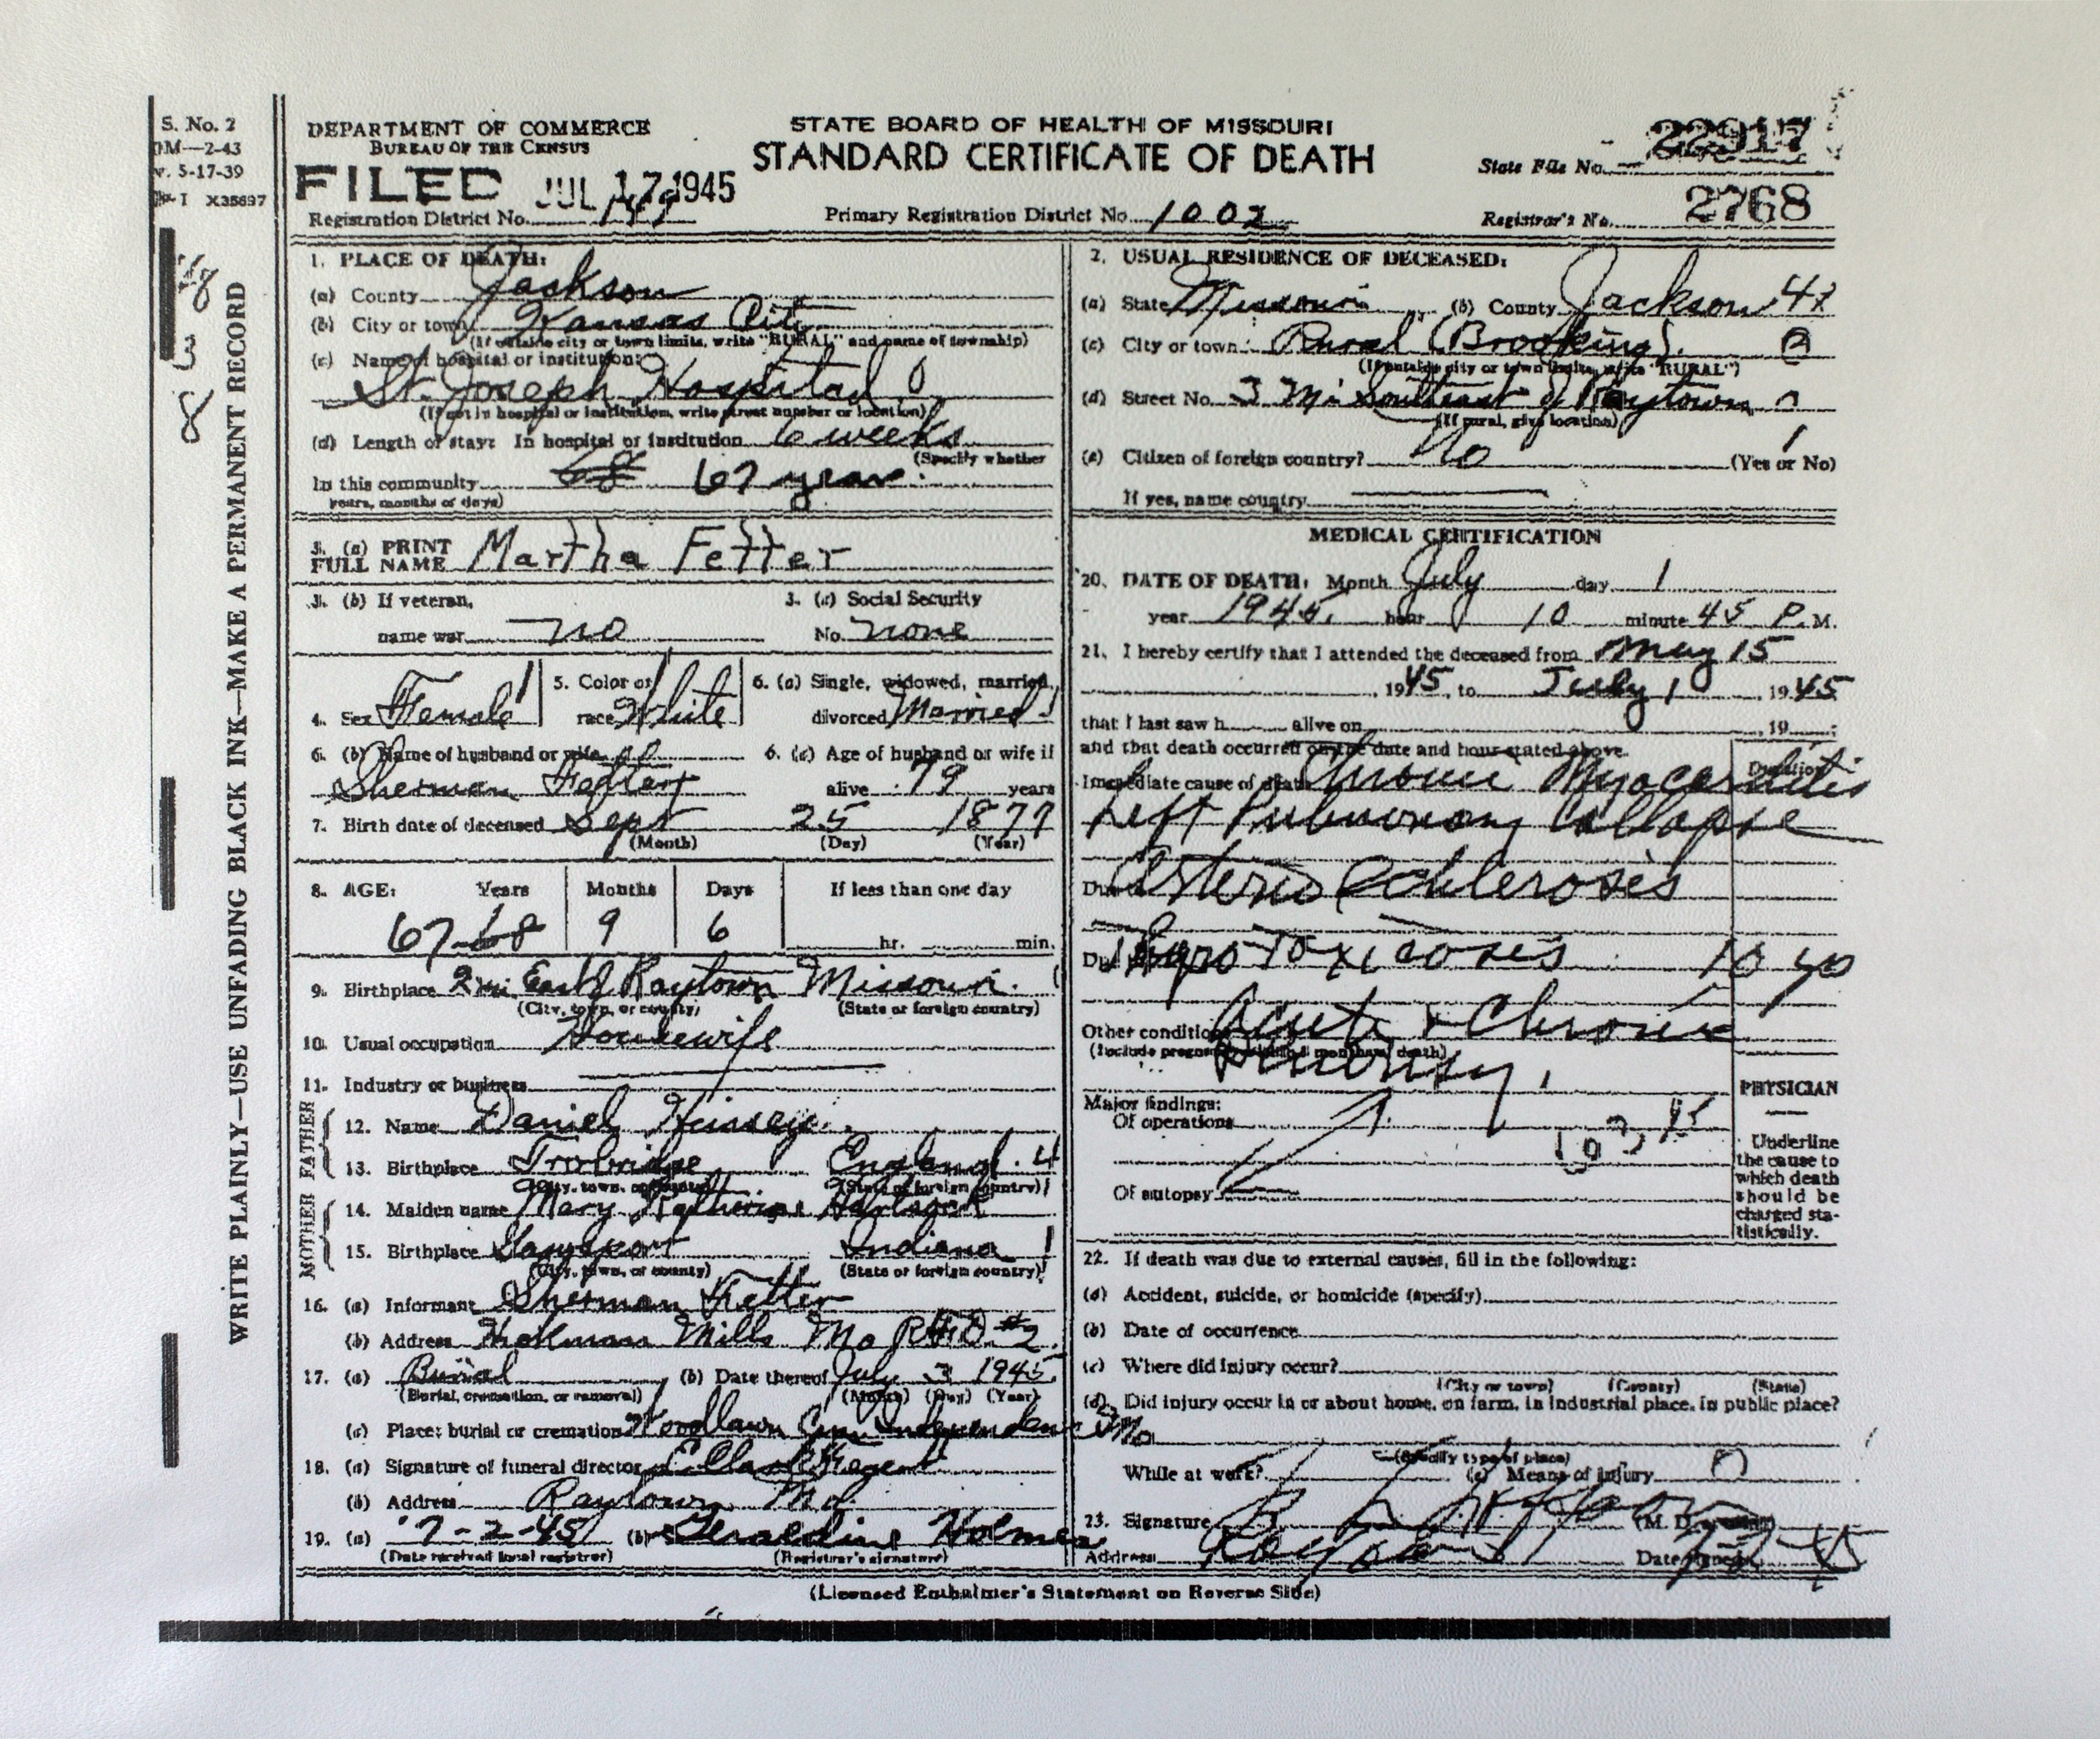 S. No. 2
M—2-43
v. 5-17-39
I X35697
WRITE PLAINLY—USE UNFADING BLACK INK—MAKE A PERMANENT RECORD
8
3
8
DEPARTMENT OF COMMERCE
BUREAU OF THE CENSUS
STATE BOARD OF HEALTH OF MISSOURI
STANDARD CERTIFICATE OF DEATH
FILED JUL 17 1945
State File No. 22917
Registration District No. 149
Primary Registration District No. 1002
Registrar's No. 2768
1. PLACE OF DEATH:
(a) County Jackson
(b) City or town Kansas City
(If outside city or town limits, write "RURAL" and name of township)
(c) Name of hospital or institution:
St. Joseph Hospital
(If not in hospital or institution, write street number or location)
(d) Length of stay: In hospital or institution 6 weeks
(Specify whether
In this community 68 67 years
years, months or days)
2. USUAL RESIDENCE OF DECEASED:
(a) State Missouri (b) County Jackson 47
(c) City or town Rural (Brooking)
(If outside city or town limits, write "RURAL")
(d) Street No. 3 Mi Southeast of Raytown
(If rural, give location)
(e) Citizen of foreign country? No (Yes or No)
If yes, name country
3. (a) PRINT
FULL NAME Martha Fetter
3. (b) If veteran,
name war no
3. (c) Social Security
No. none
4. Sex Female
5. Color or
race White
6. (a) Single, widowed, married,
divorced Married
6. (b) Name of husband or wife
Sherman Fetter
6. (c) Age of husband or wife if
alive 79 years
7. Birth date of deceased Sept 25 1877
(Month) (Day) (Year)
8. AGE: Years Months Days If less than one day
67 68 9 6 hr. min.
9. Birthplace 2 mi East of Raytown Missouri
(City, town, or county) (State or foreign country)
10. Usual occupation Housewife
11. Industry or business
FATHER
12. Name Daniel
13. Birthplace England
(City, town, or county) (State or foreign country)
MOTHER
14. Maiden name Mary Katherine
15. Birthplace Indiana
(City, town, or county) (State or foreign country)
16. (a) Informant Sherman Fetter
(b) Address Hickman Mills Mo RFD #2
17. (a) Burial (b) Date thereof July 3 1945
(Burial, cremation, or removal) (Month) (Day) (Year)
(c) Place: burial or cremation Woodlawn Cem Independence Mo
18. (a) Signature of funeral director
(b) Address Raytown Mo.
19. (a) 7-2-45 (b) Geraldine Holmes
(Date received local registrar) (Registrar's signature)
MEDICAL CERTIFICATION
20. DATE OF DEATH: Month July day 1
year 1945, hour 10 minute 45 P. M.
21. I hereby certify that I attended the deceased from May 15
1945, to July 1 1945
that I last saw h alive on , 19 ;
and that death occurred on the date and hour stated above.
Duration
Immediate cause of death Chronic Myocarditis
Left Pulmonary Collapse
Due to Arterio Schlerosis
Due to Thyro Toxicosis 10 yo
Other conditions Acute & Chronic
(Include pregnancy within 3 months of death)
Major findings:
Of operations
Of autopsy
PHYSICIAN
Underline
the cause to
which death
should be
charged sta-
tistically.
22. If death was due to external causes, fill in the following:
(a) Accident, suicide, or homicide (specify)
(b) Date of occurrence
(c) Where did injury occur?
(City or town) (County) (State)
(d) Did injury occur in or about home, on farm, in industrial place, in public place?
(Specify type of place)
While at work? (e) Means of injury
23. Signature (M. D. or other)
Address Raytown Date signed
(Licensed Embalmer's Statement on Reverse Side)